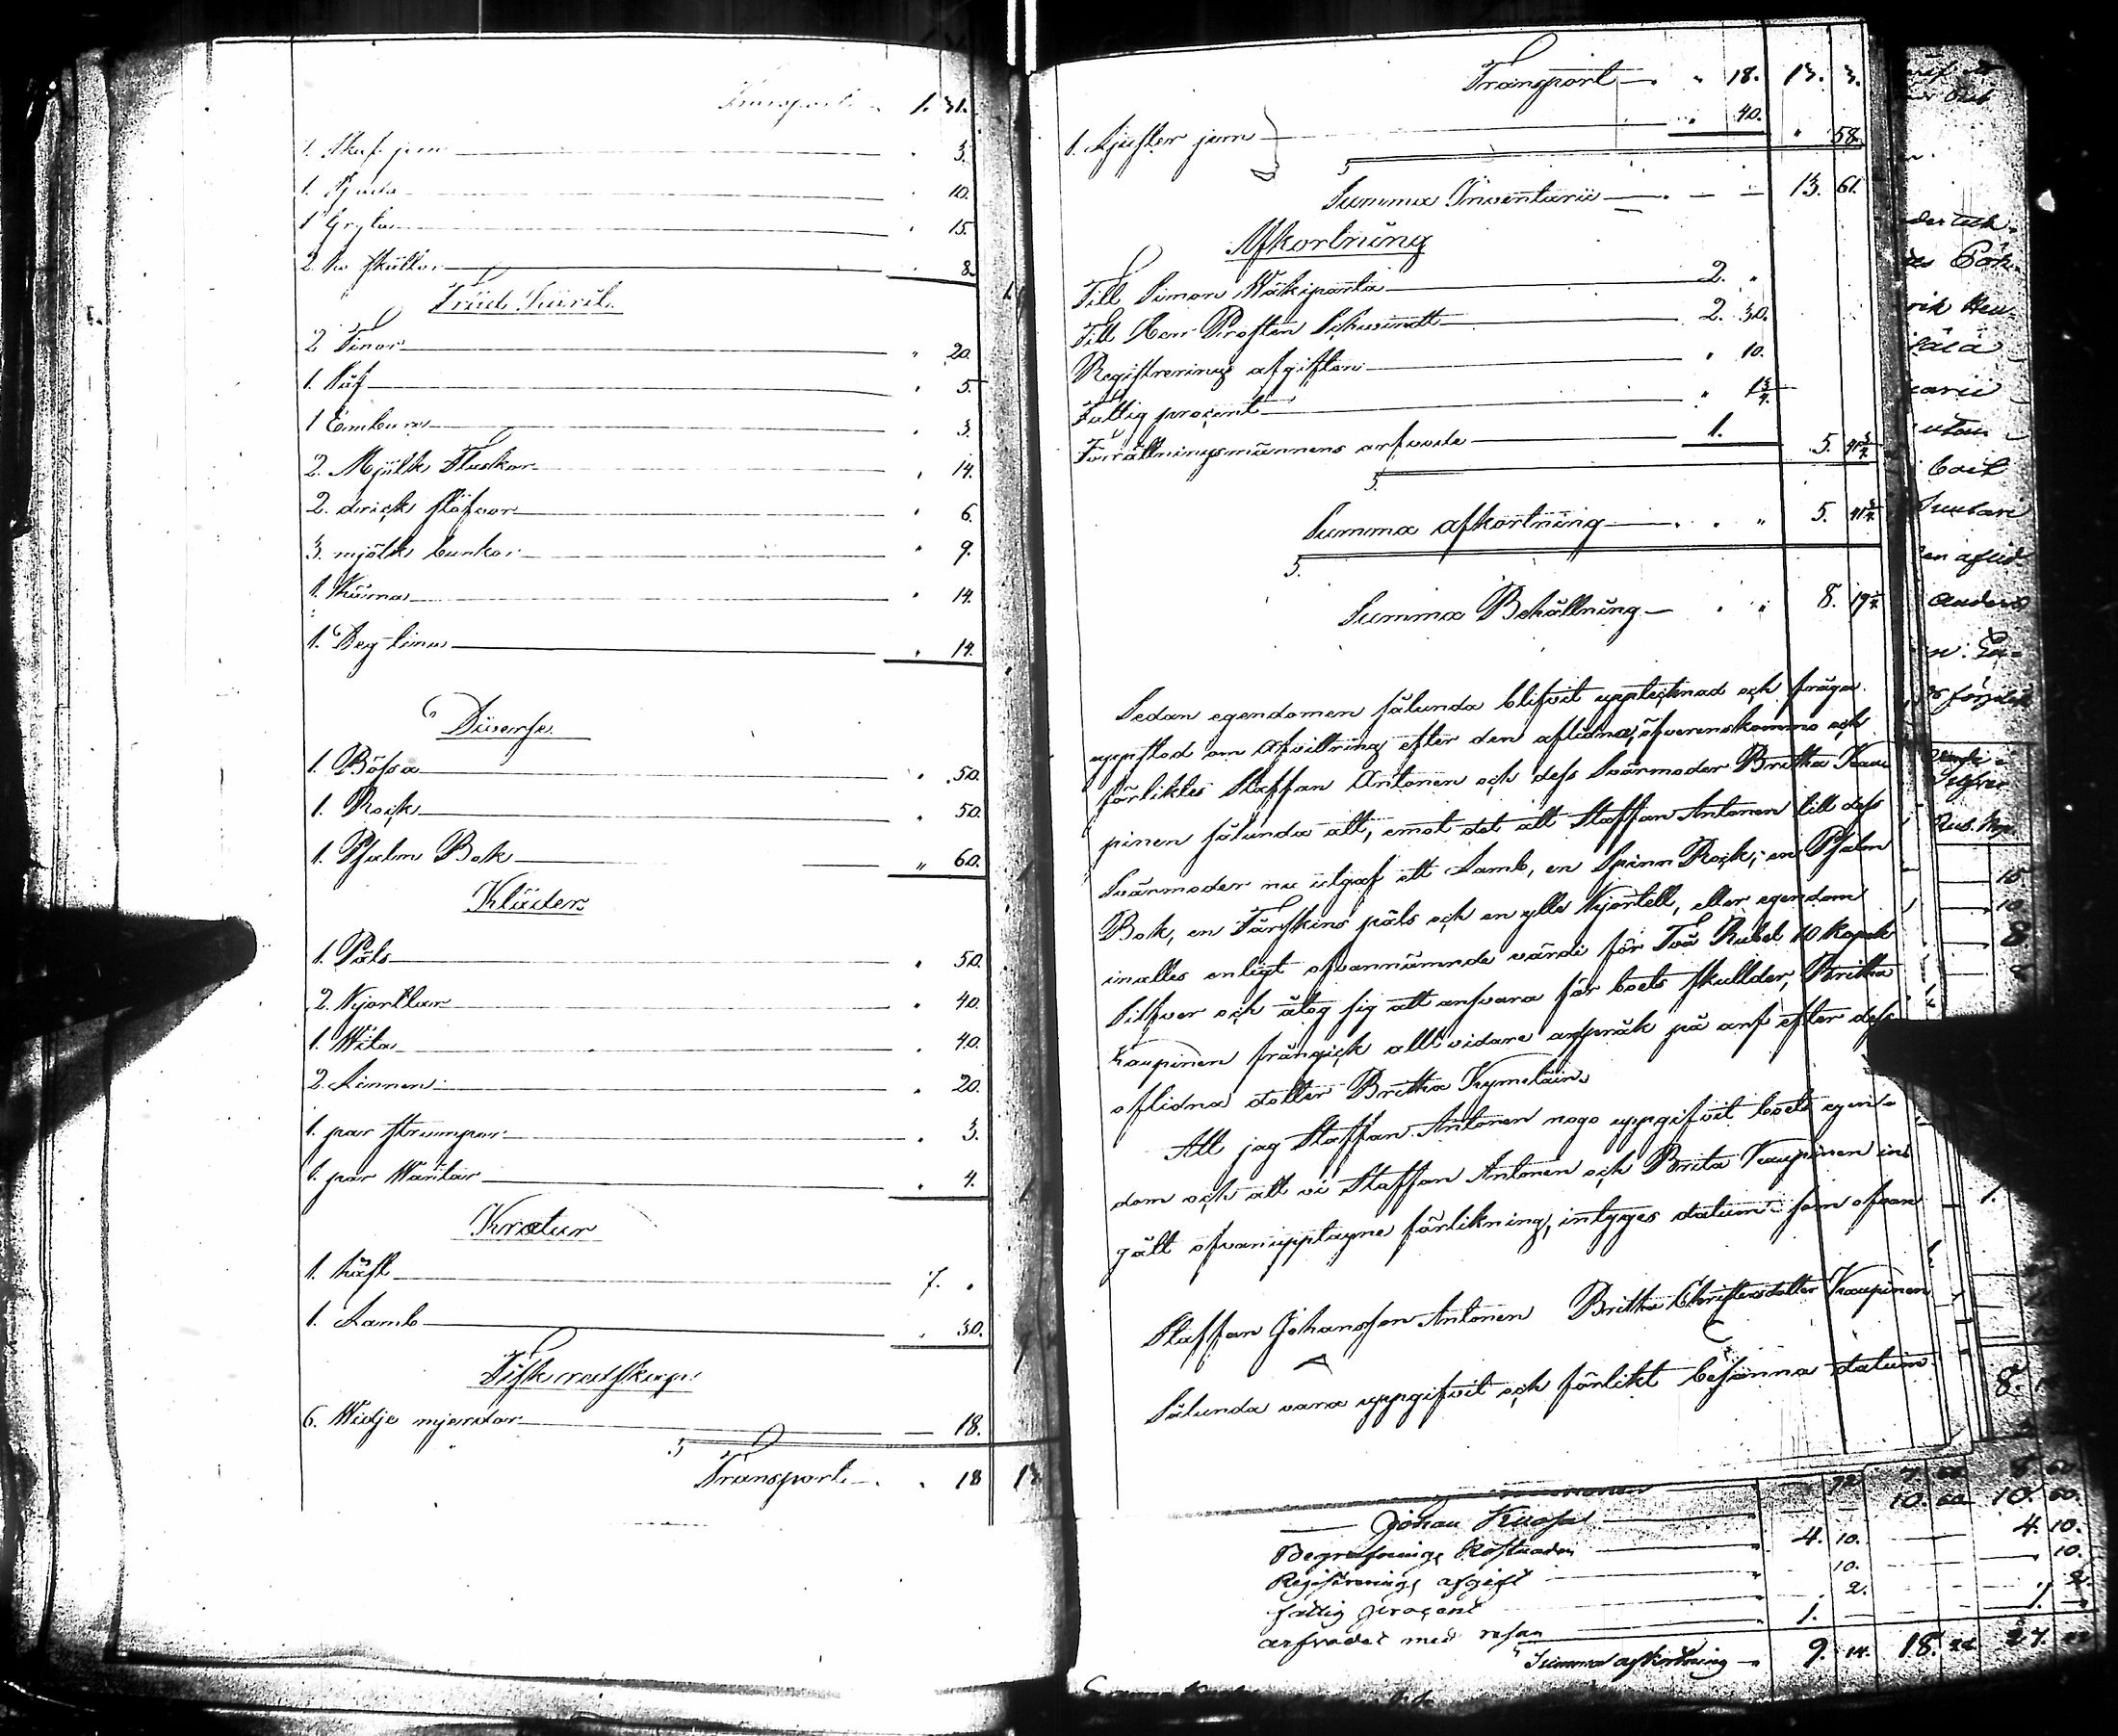 Transport 1. 31.
1. Skaf jern " 3.
1. Spada " 10.
1 Gryta " 15.
2. ho skullor " 8.
Träd Käril
2 Tinor " 20.
1. Såf " 5.
1 Embar " 3.
2. Mjölk Flaskor " 14.
2. drick stöfvor " 6.
3. mjölk bunkar " 9.
1. Kärna " 14.
1. Deg tina " 14.
Diverse
1. Bössa " 50.
1. Rock " 50.
1. Psalm Bok " 60.
Kläder
1. Päls " 50.
2. Kjortlar " 40.
1. Wita " 40.
2. Linnen " 20.
1. par strumpor " 3.
1. par Wantar " 4.
Kreatur
1. häst 7. "
1. Lamb " 30.
Fisk redskap
6. Widje mjerdar — 18.
Transport " 18
Transport — " 18. 13. 3.
1. Ljuster jern " 40. " 58.
Summa Inventarii — 13. 61.
Afkortning
Till Simon Mäkiparta 2. "
Till Herr Prosten Schwindt 2. 30.
Registrerings afgiften " 10.
Fattig procent " 1 3/4.
Förrättningsmännens arfvode 1. 5. 41 3/4
Summa afkortning " " 5. 41 3/4
Summa Behållning " " 8. 19 1/4
Sedan egendomen sålunda blifvit upptecknad och fråga
uppstod om afvittring efter den aflidna, öfverenskommo och
förliktes Staffan Antonen och dess Svärmoder Britha Kau
pinen sålunda att, emot det att Staffan Antonen till dess
Svärmoder nu utgaf ett Lamb, en Spinn Rock, en Psalm
Bok, en Fårskins päls och en ylle Kjortell, eller egendom
inalles enligt ofvannämnde värde för Två Rubel 10 Kopek
Silfver och åtog sig att ansvara för boets skullder, Britha
Kaupinen frångick allt vidare anspråk på arf efter dess
aflidna dotter Britha Kymeläin.
Att jag Staffan Antonen noga uppgifvit boets egen-
dom och att vi Staffan Antonen och Brita Kaupinen in
gått ofvanupptagne förlikning, intyges datum som ofvan
Staffan Johansson Antonen Britha Christersdotter Kaupinen
Sålunda vara uppgifvit och förlikt besanna datum
Johan 10. 60. 10. 60.
Begrafnings Kostnaden 4. 10. 4. 10.
Registrerings afgift 10. 10.
fattig procent 2. 2.
arfvodet med resan 1. — 1.
Summa afkortning — 9. 14. 18. 27.